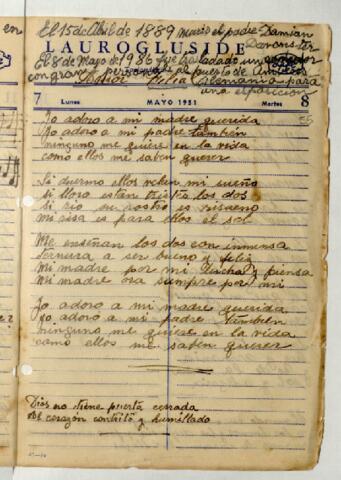 en
El 15 de Abril de 1889 murió el padre Damian
LAUROGLUSIDE
El 8 de Mayo de 1986 fue
con gran
puerto de
Alemania para
una exposicion
7 Lunes MAYO 1951 Martes 8
Yo adoro a mi madre querida
Yo adoro a mi padre tambien
ninguno me quiere en la vida
como ellos me saben querer
Si duermo ellos velan mi sueño
si lloro estan tristes los dos
si rio su rostro es risueño
mi risa es para ellos el sol
Me enseñan los dos con inmensa
ternura a ser bueno y feliz
Mi madre por mi lucha y piensa
Mi madre ora siempre por mi
Yo adoro a mi madre querida
Yo adoro a mi padre tambien
ninguno me quiere en la vida
como ellos me saben querer
Dios no tiene puerta cerrada
al corazón contrito y humillado